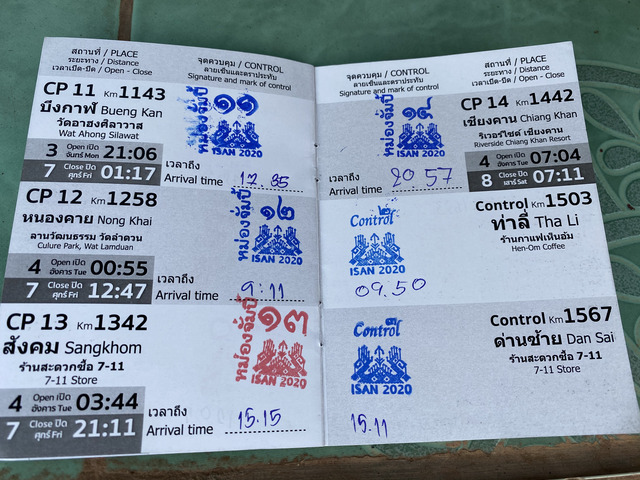 สถานที่ / PLACE
ระยะทาง / Distance
เวลาเปิด-ปิด / Open - Close
จุดควบคุม / CONTROL
ลายเซ็นและตราประทับ
Signature and mark of control
CP 11 Km 1143
บึงกาฬ Bueng Kan
วัดอาฮงศิลาวาส
Wat Ahong Silawat
3 Open เปิด จันทร์ Mon 21:06
7 Close ปิด ศุกร์ Fri 01:17
หม่องจั้มปี๊ ๑๑
ISAN 2020
เวลาถึง
Arrival time 17.35
CP 12 Km 1258
หนองคาย Nong Khai
ลานวัฒนธรรม วัดลำดวน
Culure Park, Wat Lamduan
4 Open เปิด อังคาร Tue 00:55
7 Close ปิด ศุกร์ Fri 12:47
หม่องจั้มปี๊ ๑๒
ISAN 2020
เวลาถึง
Arrival time 9:11
CP 13 Km 1342
สังคม Sangkhom
ร้านสะดวกซื้อ 7-11
7-11 Store
4 Open เปิด อังคาร Tue 03:44
7 Close ปิด ศุกร์ Fri 21:11
หม่องจั้มปี๊ ๑๓
ISAN 2020
เวลาถึง
Arrival time 15.15
จุดควบคุม / CONTROL
ลายเซ็นและตราประทับ
Signature and mark of control
สถานที่ / PLACE
ระยะทาง / Distance
เวลาเปิด-ปิด / Open - Close
หม่องจั้มปี๊ ๑๔
ISAN 2020
เวลาถึง
Arrival time 20 57
CP 14 Km 1442
เชียงคาน Chiang Khan
ริเวอร์ไซด์ เชียงคาน
Riverside Chiang Khan Resort
4 Open เปิด อังคาร Tue 07:04
8 Close ปิด เสาร์ Sat 07:11
Control ๒
ISAN 2020
09.50
Control Km 1503
ท่าลี่ Tha Li
ร้านกาแฟเห็นอ้ม
Hen-Om Coffee
Control ๓
ISAN 2020
15.11
Control Km 1567
ด่านซ้าย Dan Sai
ร้านสะดวกซื้อ 7-11
7-11 Store